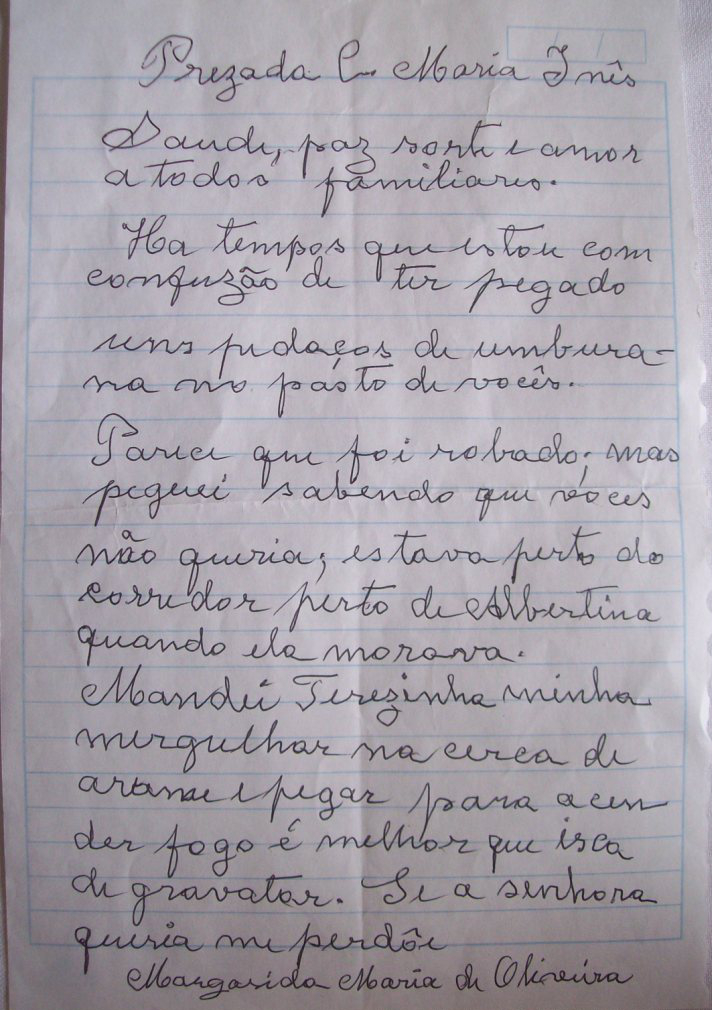 Prezada C. Maria Inês
Saude, paz sorte e amor
a todos familiares.
Ha tempos que estou com
confuzão de ter pegado
uns pedaços de umbura-
na no pásto de vocês.
Parece que foi robado; mas
peguei sabendo que vóces
não queria; estava perto do
corredor perto de Albertina
quando ela morava.
Mandei Terezinha minha
mergulhar na cerca de
arame e pegar para acen
der fogo é melhor que isca
de gravatar. Se a senhora
queria me perdôe
Margarida Maria de Oliveira